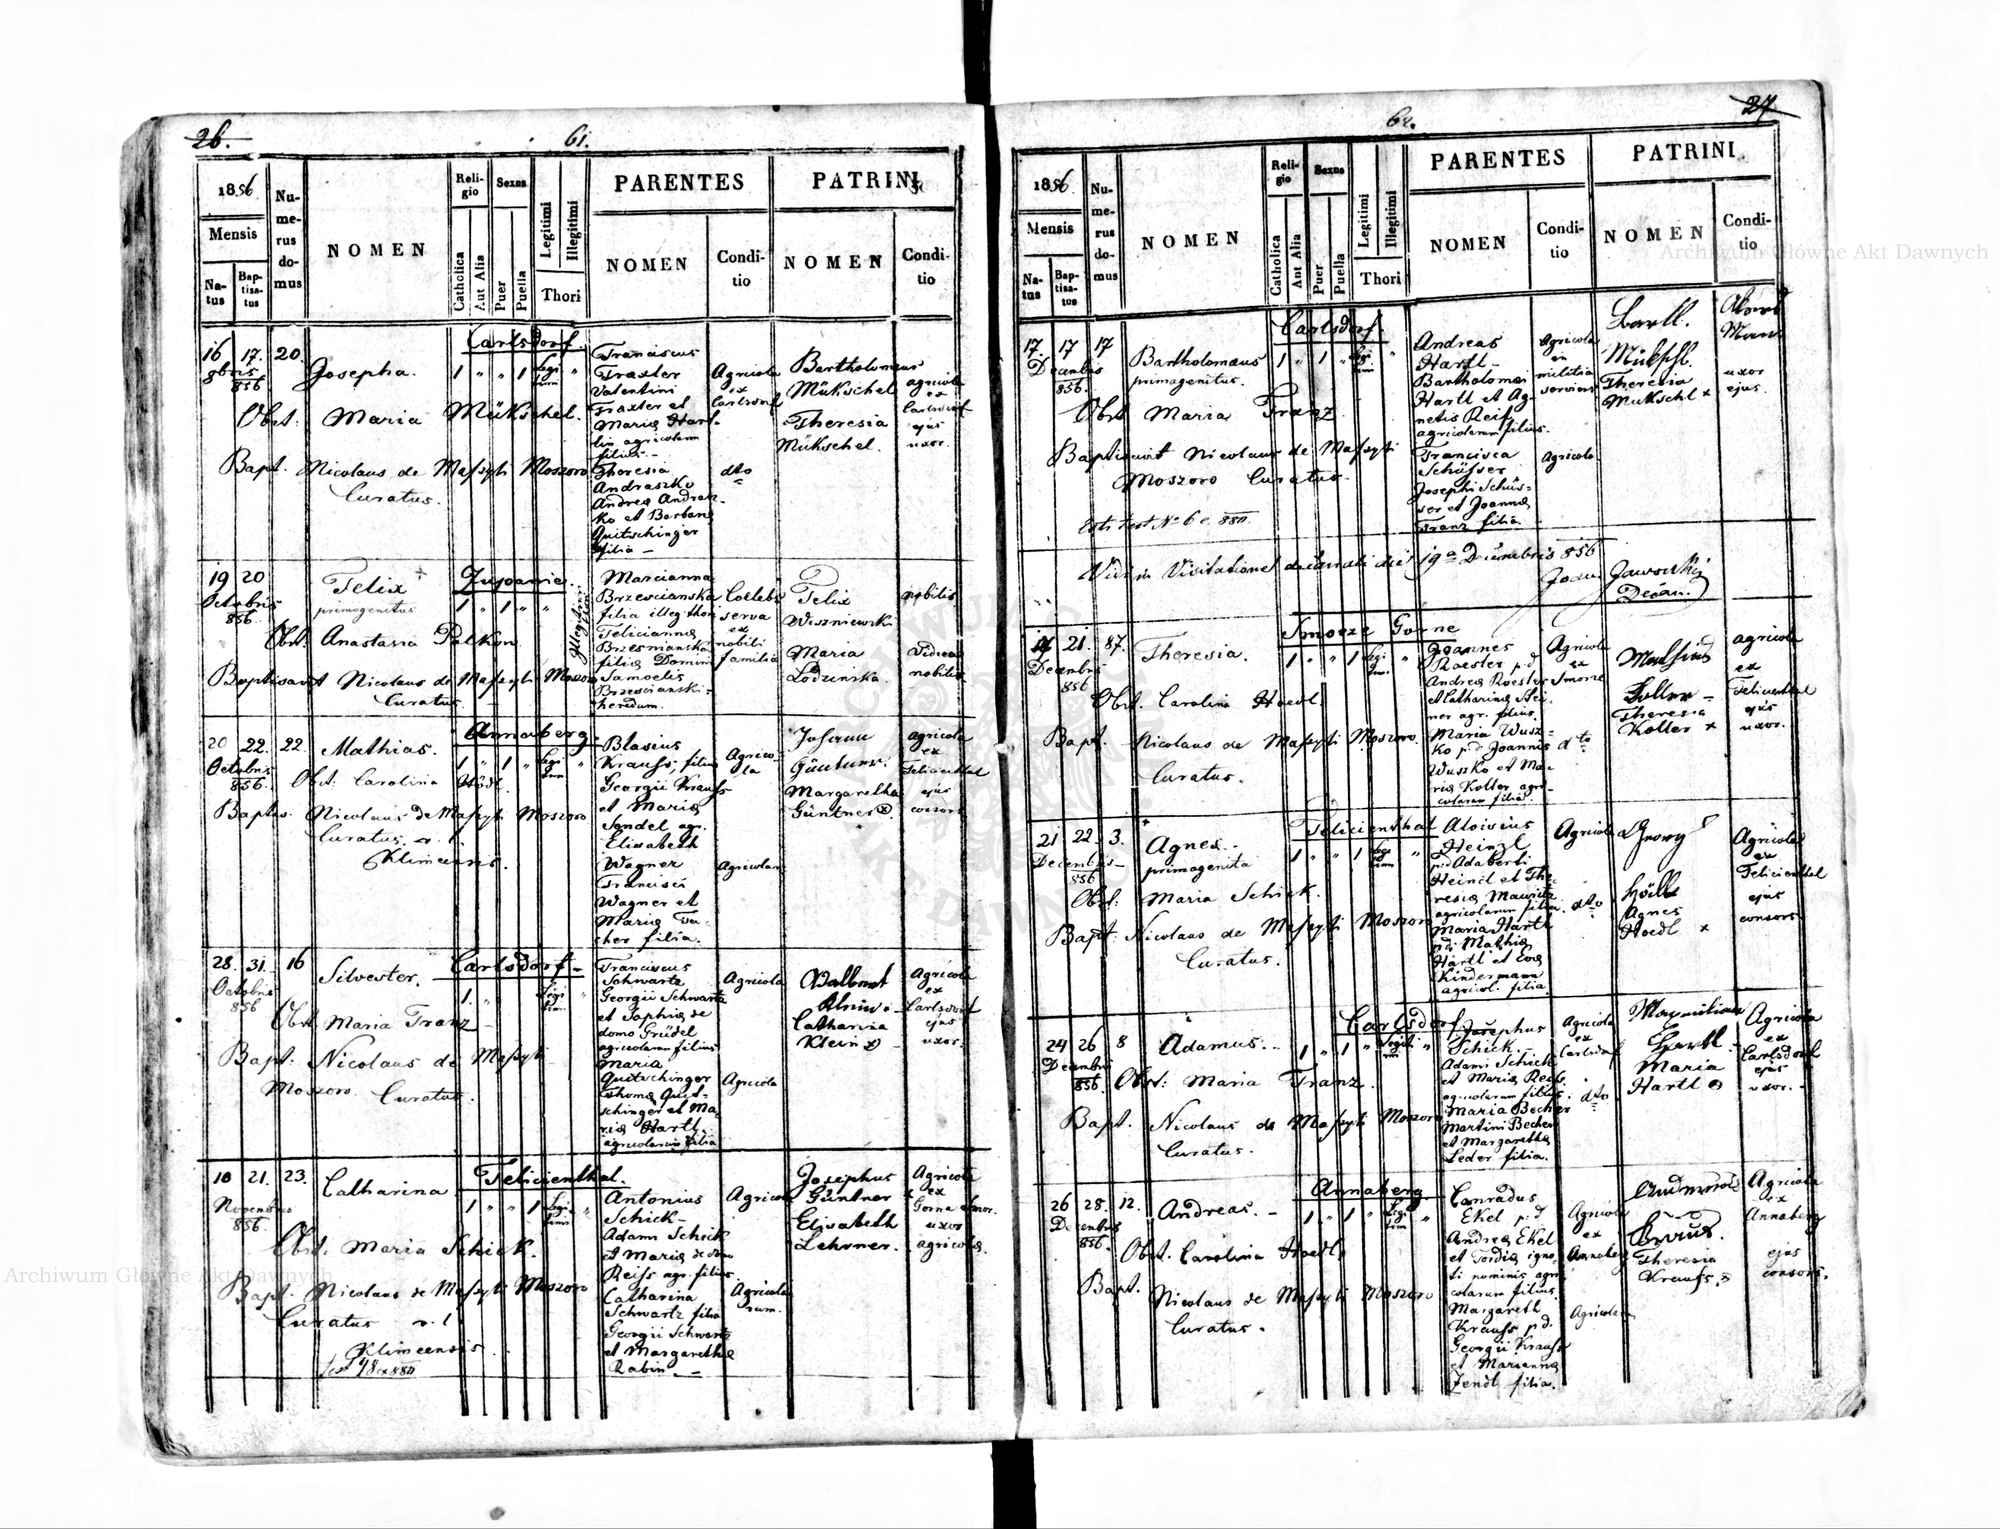 26.
61.
1856.
Mensis
Natus
Baptisatus
Numerus domus
NOMEN
Religio
Catholica
Aut Alia
Sexus
Puer
Puella
Legitimi
Illegitimi
Thori
PARENTES
NOMEN
Conditio
PATRINI
NOMEN
Conditio
Carlsdorf
16 17. 20.
8bris
856.
Josepha.
1 " " 1 Legitim "
Obst: Maria Mükschel.
Bapt. Nicolaus de Maszyti Moszoro
Curatus.
Franciscus
Fraxter
Valentini
Fraxter et
Mariæ Hartlin agricolarum
filius. -
Theresia
Andraszko
Andreæ Andraszko
et Barbaræ
Quitschinger
filia -
Agricola
ex
Carlsdorf
dto
Bartholomeus
Mükschel
Theresia
Mükschel.
agricola
ex
Carlsdorf
ejus
uxor.
Zupanie.
19 20
Octobris
856.
Felix
primogenitus
1 " 1 " "
Obst. Anastasia Palkow
Baptisavit Nicolaus de Maszyti Moszoro
Curatus.
Marcianna
Brzescianska
filia illeg. thori
Felicianna
Brzesnianska
filiæ Domini
Samoelis
Brzescianski
heredum.
Coelebs
serva
ex
nobili
familia
Felix
Wiszniewski
Maria
Lodzinska.
nobilis
Vidua
nobilis
Annaberg.
20 22. 22.
Octobris
856.
Mathias.
1 " 1 " Legitim "
Obst. Carolina Hödl.
Baptis. Nicolaus de Maszyti Moszoro
Curatus
Klimecensis.
Blasius
Krauss, filius
Georgii Krauss
et Mariæ
Sendel agr.
Elisabeth
Wagner
Francisci
Wagner et
Mariæ Tucher filia.
Agricola
Agricolarum
Johann
Güntner.
Margaretha
Güntner
agricola
ex
Felicienthal
ejus
consors
Carlsdorf -
28. 31. 16
Octobris
856
Silvester.
1. " Legitim "
Obst. Maria Franz
Bapt. Nicolaus de Maszyti
Moszoro Curatus.
Franciscus
Schwartz
Georgii Schwartz
et Sophiæ de
domo Grüdel
agricolarum filius
Maria
Quitschinger
Thomæ Quitschinger et Mariæ Hartl.
agricolarum filia
Agricola
Agricola
Catharina
Klein
Agricola
ex
Carlsdorf
ejus
uxor.
Felicienthal.
18 21. 23.
Novembris
856.
Catharina
1 " " 1 Legitim "
Obst. Maria Schick.
Bapt. Nicolaus de Maszyti Moszoro
Curatus
Klimecensis
Antonius
Schick -
Adami Schick
et Mariæ de domo
Reiss agr. filius
Catharina
Schwartz filia
Georgii Schwartz
et Margarethæ
Rabin. -
Agricola
Agricolarum.
Josephus
Güntner
Elisabeth
Lehrner.
Agricola
ex
Gorne Smor.
uxor
agricolæ.
62.
27
1856.
Mensis
Natus
Baptisatus
Numerus domus
NOMEN
Religio
Catholica
Aut Alia
Sexus
Puer
Puella
Legitimi
Illegitimi
Thori
PARENTES
NOMEN
Conditio
PATRINI
NOMEN
Conditio
Carlsdorf.
17. 17 17
Decembris
856
Bartholomeus
primogenitus.
1 " 1 " Legitim "
Obst. Maria Franz
Baptisavit Nicolaus de Maszyti
Moszoro Curatus.
Andreas
Hartl -
Bartholomæi
Hartl et Agnetis Reiss
agricolarum filius.
Francisca
Schüsser
Josephi Schüsser et Joannæ
Franz filia
Agricola
in
militia
serviens
Agricola
Bartl.
Mükschl.
Theresia
Mukschl x
uxor
ejus.
Vidi in Visitatione decanali die 19a Decembris 856
Jaworski
Decan.
Smorze Gorne
21. 87.
Decembris
856
Theresia.
1 " " 1 Legitim "
Obst. Carolina Hoedl.
Bapt. Nicolaus de Maszyti Moszoro.
Curatus.
Joannes
Roester p.d
Andreæ Roester
et Catharinæ Steiner agr. filius.
Maria Wuszko p.d Joannis
Wuszko et Mariæ Koller agricolarum filia.
Agricola
ex
Smorze
dto
Mathias
Koller -
Theresia
Koller x
agricola
ex
Felicienthal
ejus
uxor.
Felicienthal
21 22. 3.
Decembris
856
Agnes. -
primogenita
1 " " 1 Legitim "
Obst: Maria Schick.
Bapt. Nicolaus de Maszyti Moszoro
Curatus.
Aloisius
Heinzl
p.d Adalberti
Heincl et Theresiæ Mauritz
agricolarum filius.
Maria Hartl
p.d. Mathiæ
Hartl et Evæ
Kindermann
agricol. filia.
Agricola
dto
Georg
Hödl
Agnes
Hoedl x
Agricola
ex
Felicienthal
ejus
consors
Carlsdorf
24 26 8
Decembris
856.
Adamus.
1 " 1 " Legitim "
Obst: Maria Franz.
Bapt. Nicolaus de Maszyti Moszoro
Curatus.
Josephus
Schick -
Adami Schick
et Mariæ Reiss.
agricolarum filius.
Maria Becher
Martini Becher
et Margarethæ
Leder filia.
Agricola
ex
Carlsdorf
dto
Hartl -
Maria
Hartl
Agricola
ex
Carlsdorf
ejus
uxor. -
Annaberg
26 28. 12.
Decembris
856.
Andreas. -
1 " 1 " Legitim "
Obst. Carolina Hoedl
Bapt. Nicolaus de Maszyti Moszoro
Curatus.
Conradus
Ekel p.d
Andreæ Ekel
et Tordiæ ignoti nominis agricolarum filius.
Margareth
Krauss p.d.
Georgii Krauss
et Mariannæ
Zendl filia.
Agricola
ex
Annaberg
Agricolarum
Andreas
Kraus.
Theresia
Krauss.
Agricola
ex
Annaberg
ejus
consors.
Archiwum Główne Akt Dawnych
Archiwum Główne Akt Dawnych
ARCHIWUM GŁÓWNE AKT DAWNYCH